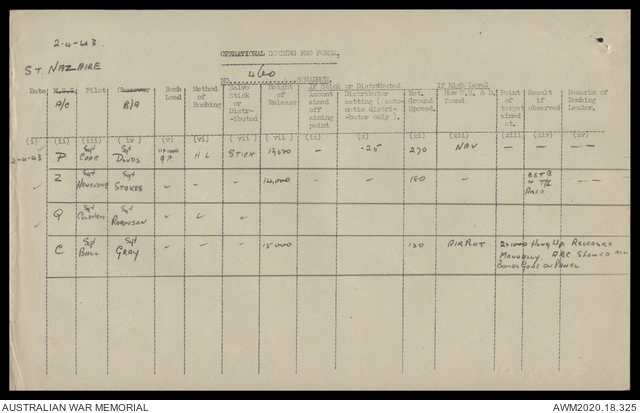 2-4-43.
ST. NAZAIRE
OPERATIONAL BOMBING PRO FORMA.
NO. 460 SQUADRON.
Date A/C Pilot Observer B/A Bomb Load Method of Bombing Salvo Stick or Distr-ibuted Height of Release If Stick or Distributed Amount aimed off aiming point Distributor setting (auto-matic distri-butor only). Est. Ground Speed. If High Level How found Point of target aimed at. Result if observed Remarks of Bombing Leader.
(i) (ii) (iii) (iv) (v) (vi) (vii) (vii) (ix) (x) (xi) (xii) (xiii) (xiv) (xv)
2-4-43 P Sgt Sgt HL STICK — .25 270 NAV — — —
Z Sgt Sgt STOKES 14,000 180
Q Sgt Sgt ROBINSON
C Sgt BALL Sgt GRAY 15000 180 AIRPLOT 2x1000 Hung Up. Released
Manually. ABC Showed all
Bombs Gone on Panel
AUSTRALIAN WAR MEMORIAL
AWM2020.18.325